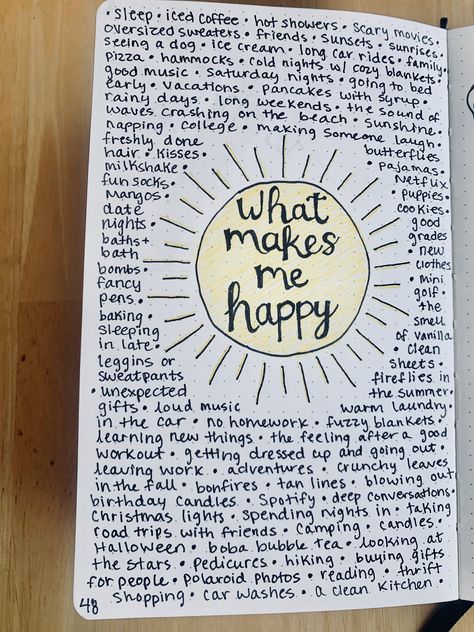 • Sleep • iced coffee • hot showers • scary movies •
oversized sweaters • friends • sunsets • sunrises •
seeing a dog • ice cream • long car rides • family •
pizza • hammocks • cold nights w/ cozy blankets •
good music • Saturday nights • going to bed
early • vacations • pancakes with syrup •
rainy days • long weekends • the sound of
waves crashing on the beach • sunshine •
napping • college • making someone laugh •
freshly done
hair • kisses •
milkshake •
fun socks •
mangos •
date
nights •
baths +
bath
bombs •
fancy
pens •
baking •
sleeping
in late •
leggins or
sweatpants
• unexpected
What
makes
me
happy
butterflies
• pajamas •
Netflix
• puppies •
cookies •
good
grades
• new
clothes
• mini
golf •
the
smell
of vanilla
• clean
sheets •
fireflies in
the summer •
gifts • loud music warm laundry •
in the car • no homework • fuzzy blankets •
learning new things • the feeling after a good
workout • getting dressed up and going out •
leaving work • adventures • crunchy leaves
in the fall • bonfires • tan lines • blowing out
birthday candles • Spotify • deep conversations •
Christmas lights • spending nights in • taking
road trips with friends • camping • candles •
Halloween • boba bubble tea • looking at
the stars • pedicures • hiking • buying gifts
for people • Polaroid photos • reading • thrift
shopping • car washes • a clean kitchen •
48